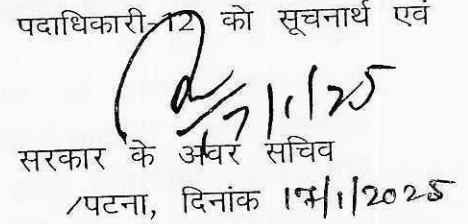 पदाधिकारी-12 को सूचनार्थ एवं
17/1/25
सरकार के अवर सचिव
/पटना, दिनांक 17/1/2025